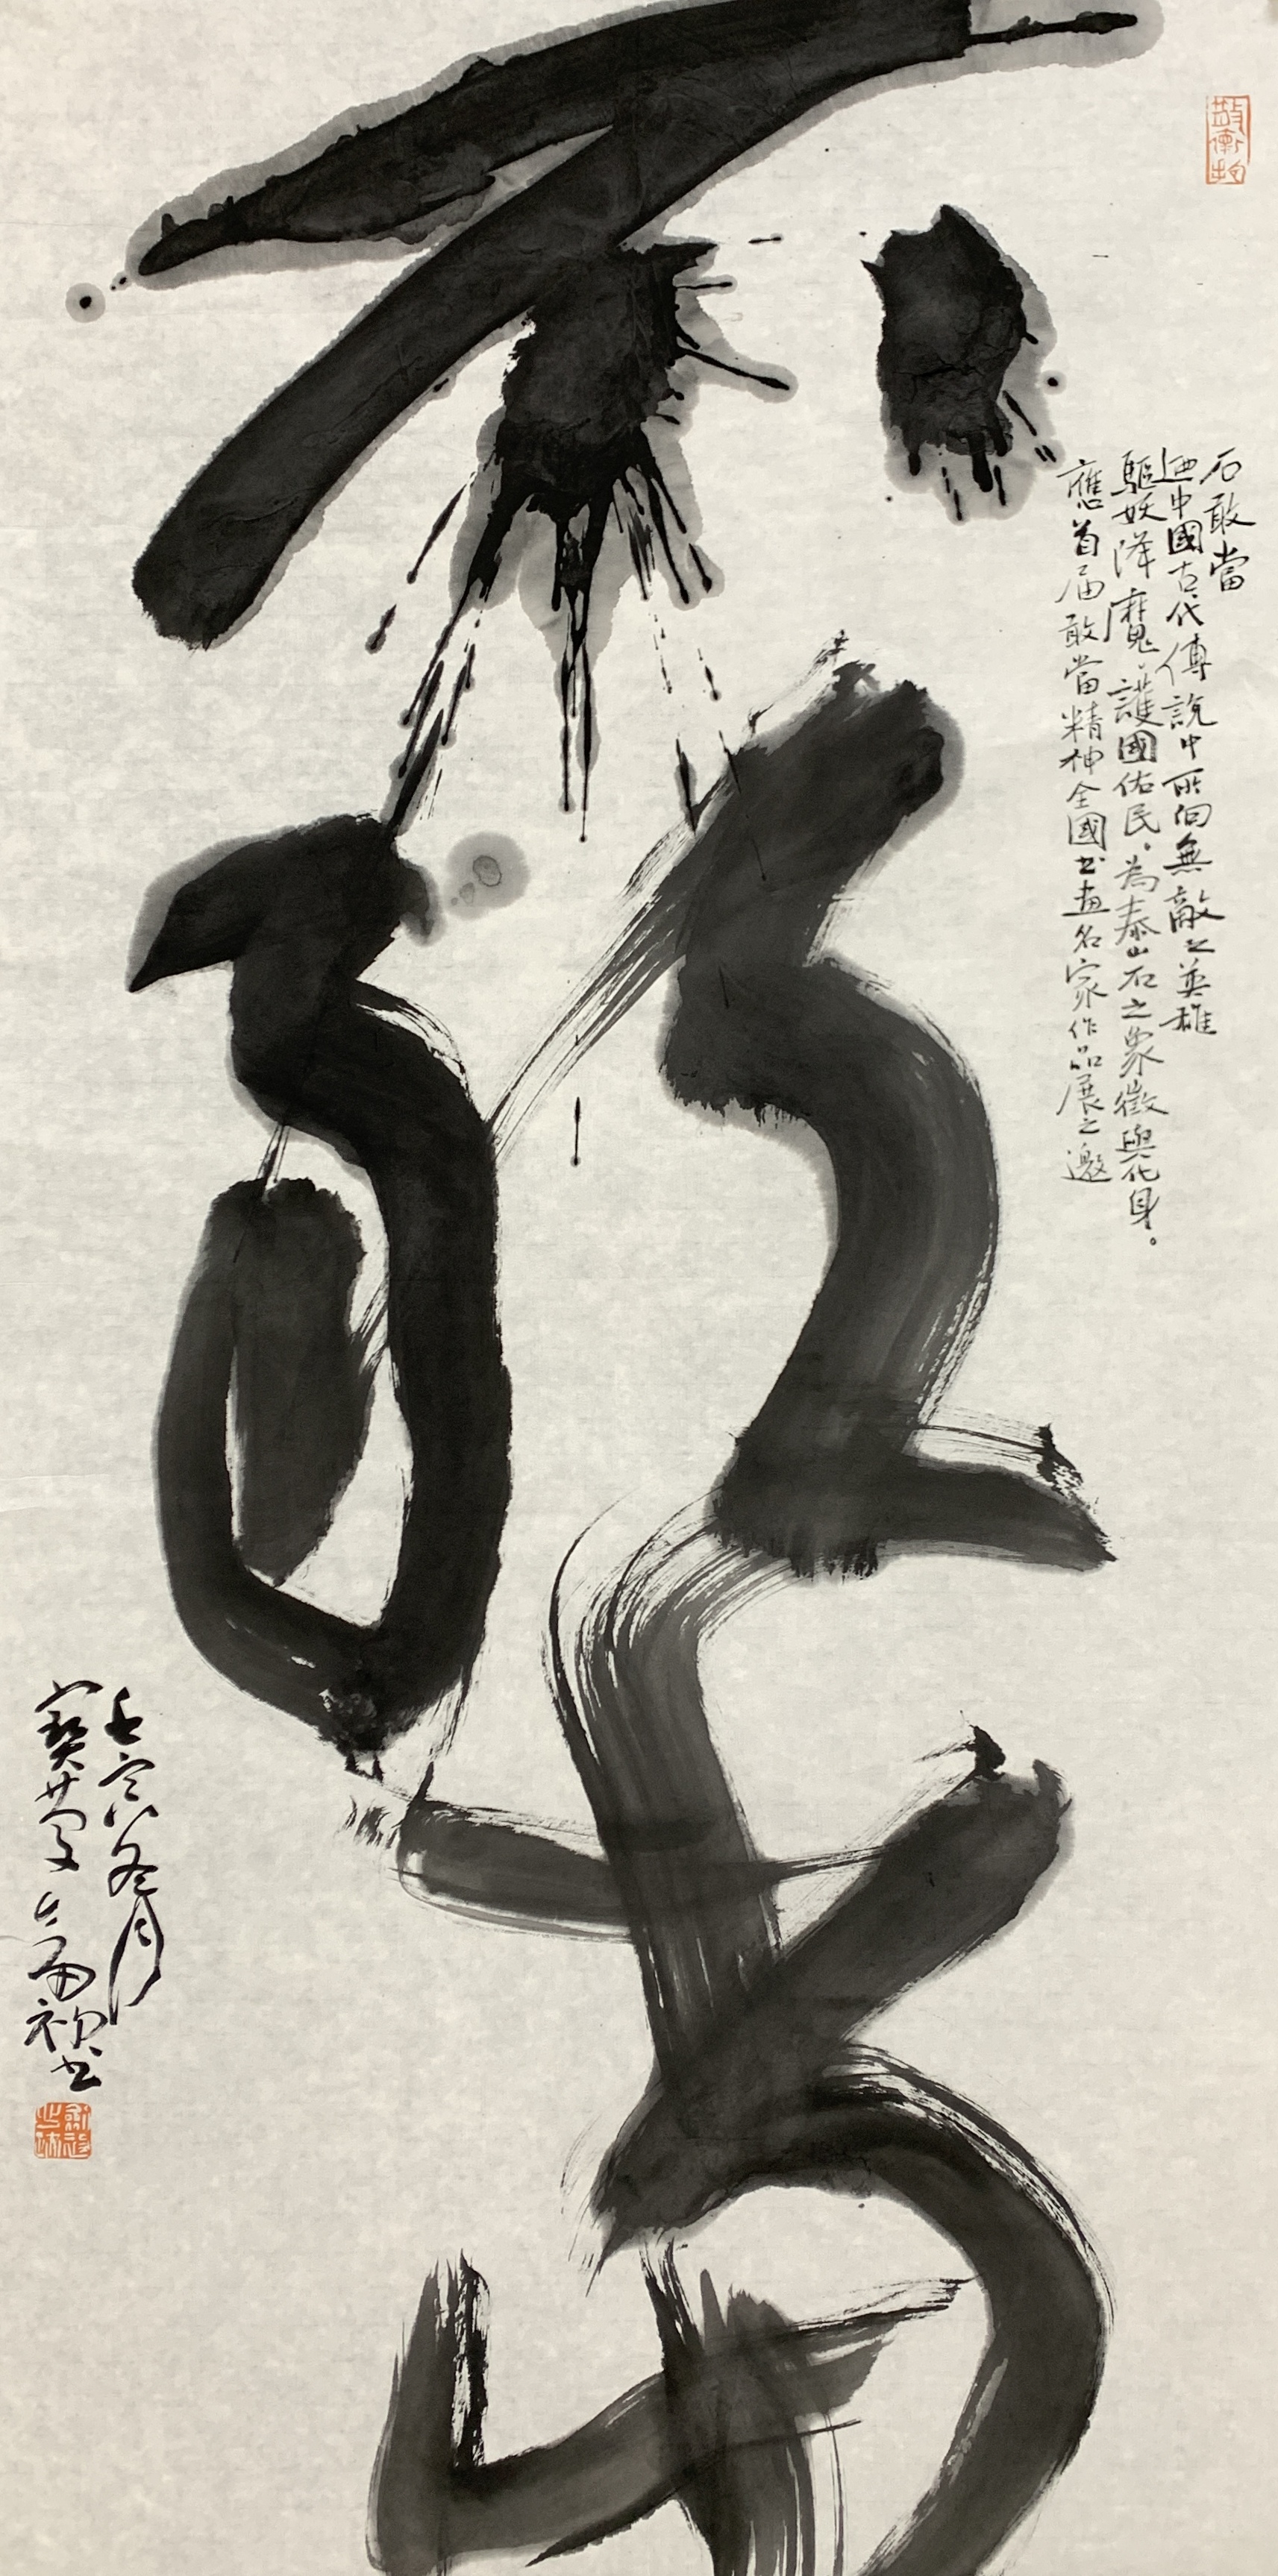 不敢當
石敢當
迺中國古代傳說中所向無敵之英雄
驅妖降魔護國佑民。為泰山石之象徵與化身。
應首届敢當精神全國書畫名家作品展之邀
壬寅冬月